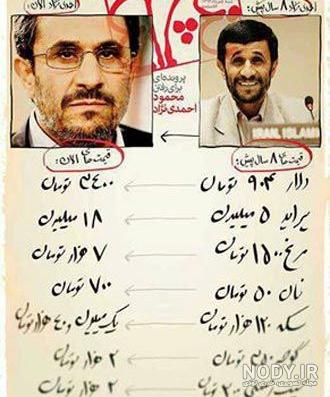 احمدی نژاد ۸ سال پیش:
احمدی نژاد الان:
پرونده‌ای
برای رفتن
محمود
احمدی‌نژاد
IRAN ISLAMI
قیمت ها ۸ سال پیش:
قیمت های الان:
دلار ۹۰۴ تومان ← ۳۴۰۰ تومان
پراید ۵ میلیون ← ۱۸ میلیون
مرغ ۱۵۰۰ تومان ← ۷ هزار تومان
نان ۵۰ تومان ← ۷۰۰ تومان
سکه ۱۲۰ هزار تومان ← یک میلیون و ۴۰ هزار تومان
تومان ← ۲ هزار تومان
۲۰۰ تومان ← ۲ هزار تومان
NODY.IR